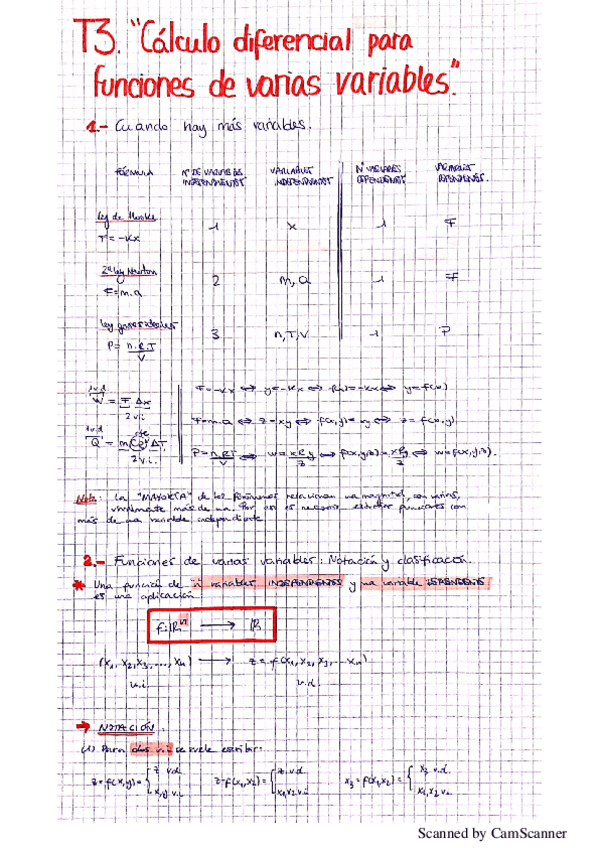 T3. "Cálculo diferencial para
funciones de varias variables".
1.- Cuando hay más variables.
FÓRMULA Nº DE VARIABLES INDEPENDIENTES VARIABLES INDEPENDIENTES Nº VARIABLES DEPENDIENTES VARIABLES DEPENDIENTES.
Ley de Hooke
F = -Kx 1 x 1 F
2ª ley Newton
F = m.a 2 m, a 1 F
Ley gases ideales 3 n, T, V 1 P
P = n.R.T
V
1 v.d
W = F Δx
2 v.i.
F = -Kx ⇔ y = -Kx ⇔ f(x) = -Kx ⇔ y = f(x)
1 v.d cte
Q = m Ce ΔT
2 v.i.
F = m.a ⇔ z = xy ⇔ f(x,y) = xy ⇔ z = f(x,y)
P = nRT/V ⇔ w = xRy/z ⇔ f(x,y,z) = xRy/z ⇔ w = f(x,y,z).
Nota: La "MAYORÍA" de los fenómenos relacionan una magnitud, con varias,
usualmente más de una. Por eso es necesario estudiar funciones con
más de una variable independiente.
2.- Funciones de varias variables: Notación y clasificación.
* Una función de n variables INDEPENDIENTES y una variable DEPENDIENTE
es una aplicación
f: ℝⁿ → ℝ
(x₁, x₂, x₃, ..., xₙ) → z = f(x₁, x₂, x₃, ... xₙ)
v.i. v.d.
→ NOTACIÓN.
(1) Para dos v.i se suele escribir:
z = f(x,y) = { z v.d. z = f(x₁,x₂) = { z v.d. x₃ = f(x₁,x₂) = { x₃ v.d.
x,y v.i. x₁,x₂ v.i. x₁,x₂ v.i.
Scanned by CamScanner